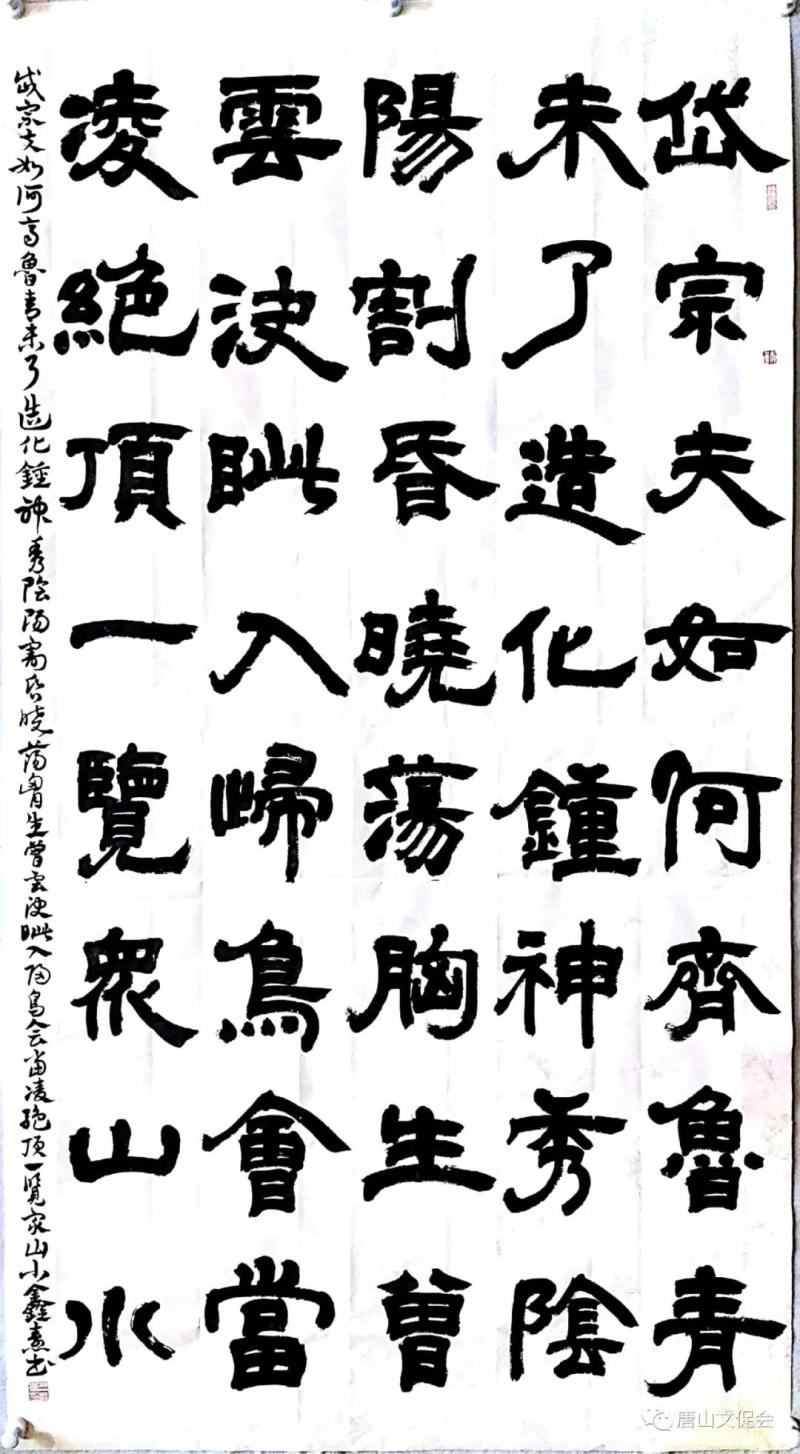 岱宗夫如何齊魯青
未了造化鍾神秀陰
陽割昏曉蕩胸生曾
雲決眦入歸鳥會當
凌絕頂一覽衆山小
岱宗夫如何齐魯青未了造化鍾神秀陰陽割昏晓荡胸生曾雲決眦入归鳥会當凌絕頂一覽衆山小鑫书
唐山文促会